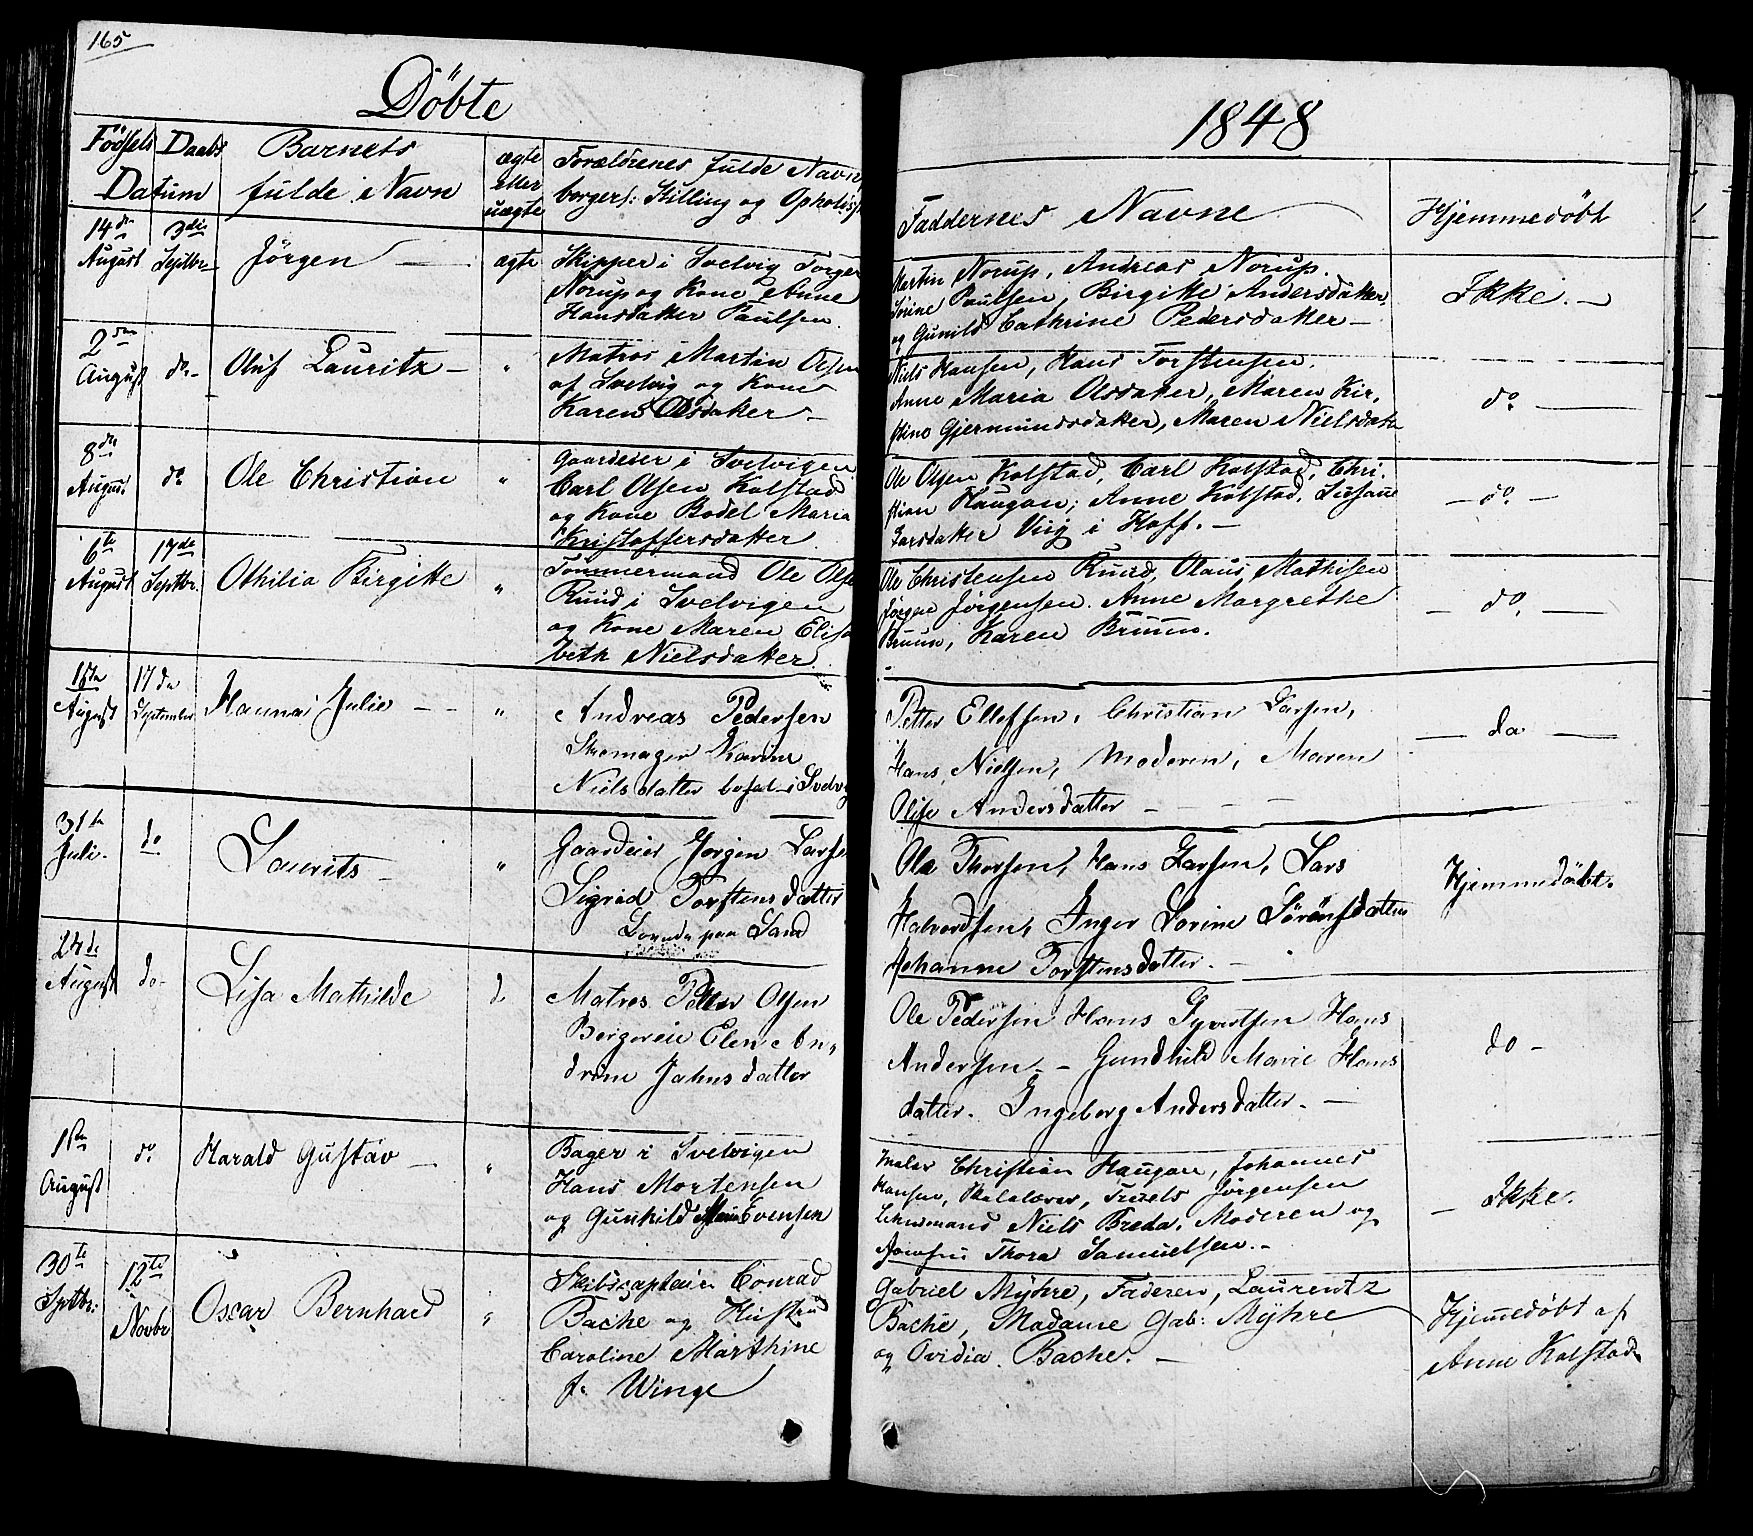 165
Döbte
1848
Födsels Daabs Barnets ægte Forældrenes fulde Navne
Datum fulde Navn eller borgerl: Stilling og Opholds
uægte Faddernes Navne Hjemmedöbt
14de 3die Jörgen — ægte Skipper i Svelvig Torger
August Septbr Norup og Kone Anne
Hansdatter Paulsen.
Martin Norup, Andreas Norup.
Sörine Paulsen, Birgitte Andersdatter
og Gunild Cathrine Pedersdatter —
Ikke. —
2den Oluf Lauritz — " Matros Martin Olsen
August do. af Svelvig og Kone
Karen Olsdatter —
Niels Hansen, Hans Torstensen.
Anne Maria Olsdatter, Maren Kir-
stine Gjermundsdatter, Maren Nielsdatter
do —
8de Ole Christian " Gaardeier i Svelvigen
August do Carl Olsen Kolstad
og Kone Bodel Maria
Kristoffersdatter
Ole Olsen Kolstad, Carl Kolstad, Chri-
stian Haugan, Anne Kolstad, Susane
Larsdatter Viig i Hoff. —
— do —
6te 17de Othilia Birgitte " Tömmermand Ole Olsen
August Septbr. Ruud i Svelvigen
og Kone Maren Elisa
beth Nielsdatter.
Ole Christensen Ruud, Olaus Mathisen
Jörgen Jörgensen. Anne Margrethe
Bruun, Karen Bruun.
— do. —
17de Hanna Julie — — " Andreas Pedersen
August September Skomager Karine
Nielsdatter bosat i Svelvig
Petter Ellefsen, Christian Larsen,
Hans Nielsen, Moderen, Maren
Olise Andersdatter — — — —
— do —
31te Laurits — " Gaardeier Jörgen Larsen
Juli. do Sigrid Torstensdatter
paa Sand
Ole Thorsen, Hans Larsen, Lars
Halvordsen, Inger Sorine Sörensdatter
Johanne Torstensdatter. —
Hjemmedöbt.
August do- Lisa Mathilde do Matros Petter Olsen
Bergereie Elen An,,
drine Jahnsdatter
Ole Pedersen Hans Syvertsen Hans
Andersen — Gundhild Marie Hans
datter. Ingeborg Andersdatter. —
do —
1ste Harald Gustav — " Bager i Svelvigen
August do. Hans Mortensen
og Gunhild Evensen
Maler Christian Haugan, Johannes
Hansen, Jörgensen
Niels Breda, Moderen og
Jomfru Thora Samuelsen. —
— Ikke.
30te 12te Oscar Bernhard " Skibscaptain Conrad
Septbr: Novbr Bache og Hustru
Caroline Marthine
f. Winge
Gabriel Mÿhre, Faderen, Laurentz
Bache, Madame Gab: Mÿhre
og Ovidia Bache. —
Hjemedöbt af
Anne Kolstad